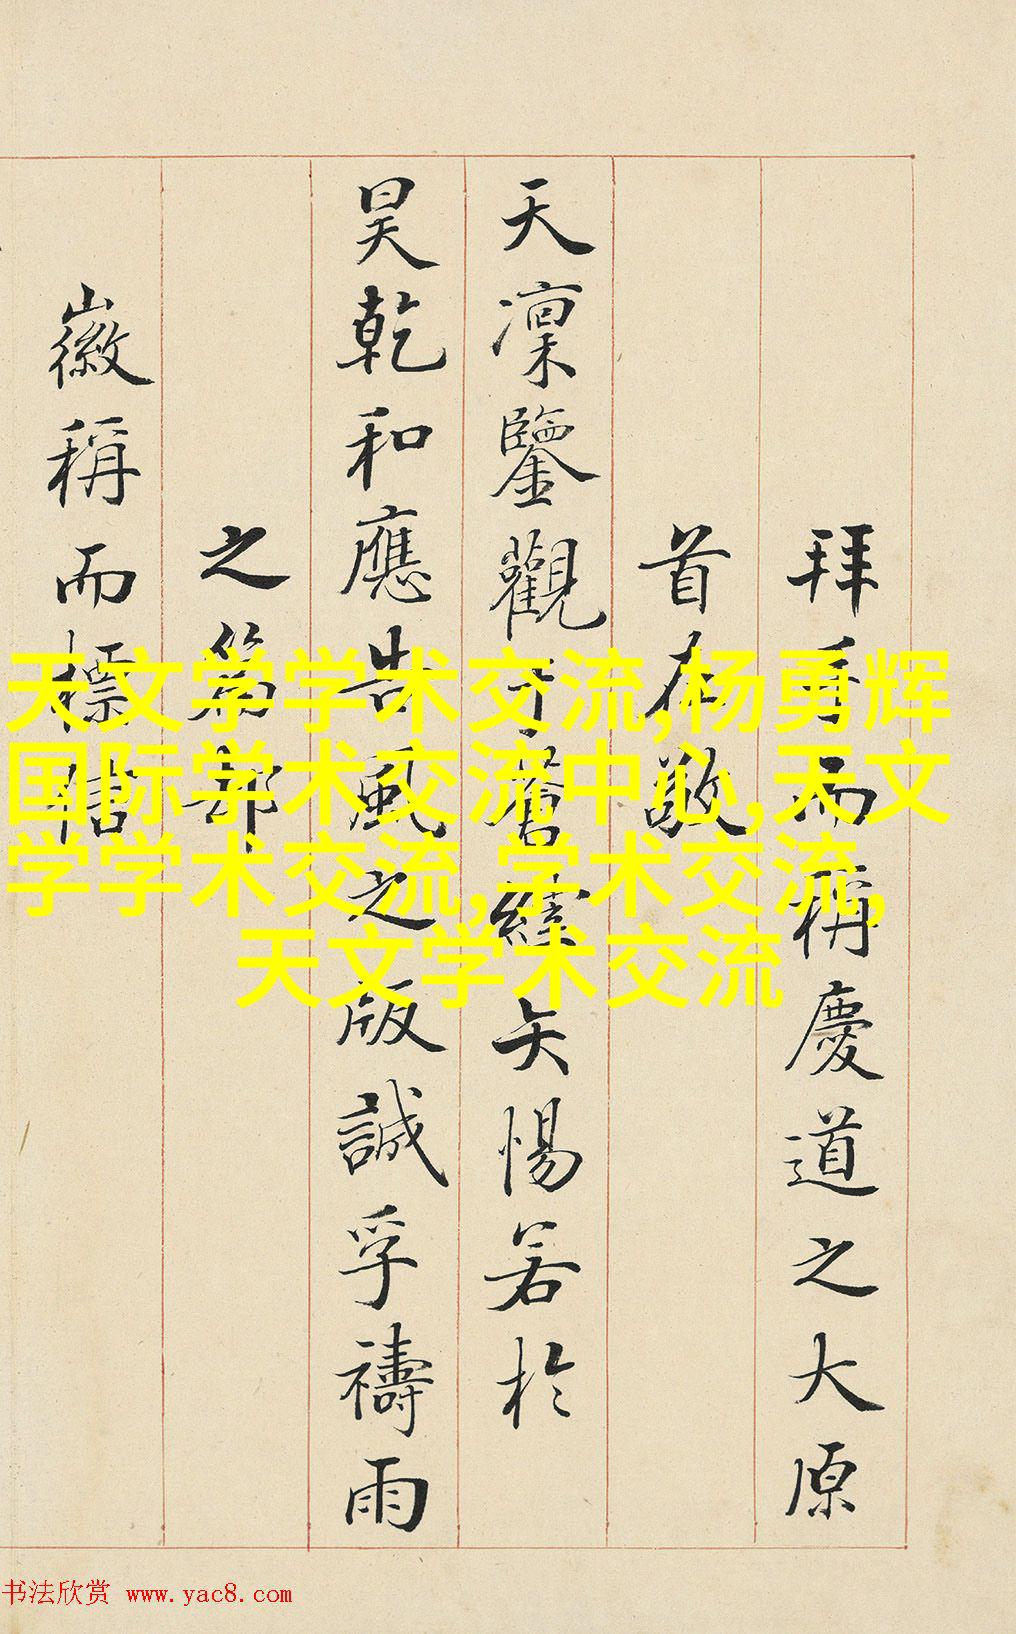 拜手而稱慶道之大原
首在敬
天凜鑒觀矢惕若於
昊乾和應告風之版誠孚禱雨
之篇
徽稱而標
天文学学术交流,杨勇辉
国际学术交流中心,天文
学学术交流,学术交流,
天文学术交流
书法欣赏 www.yac8.com